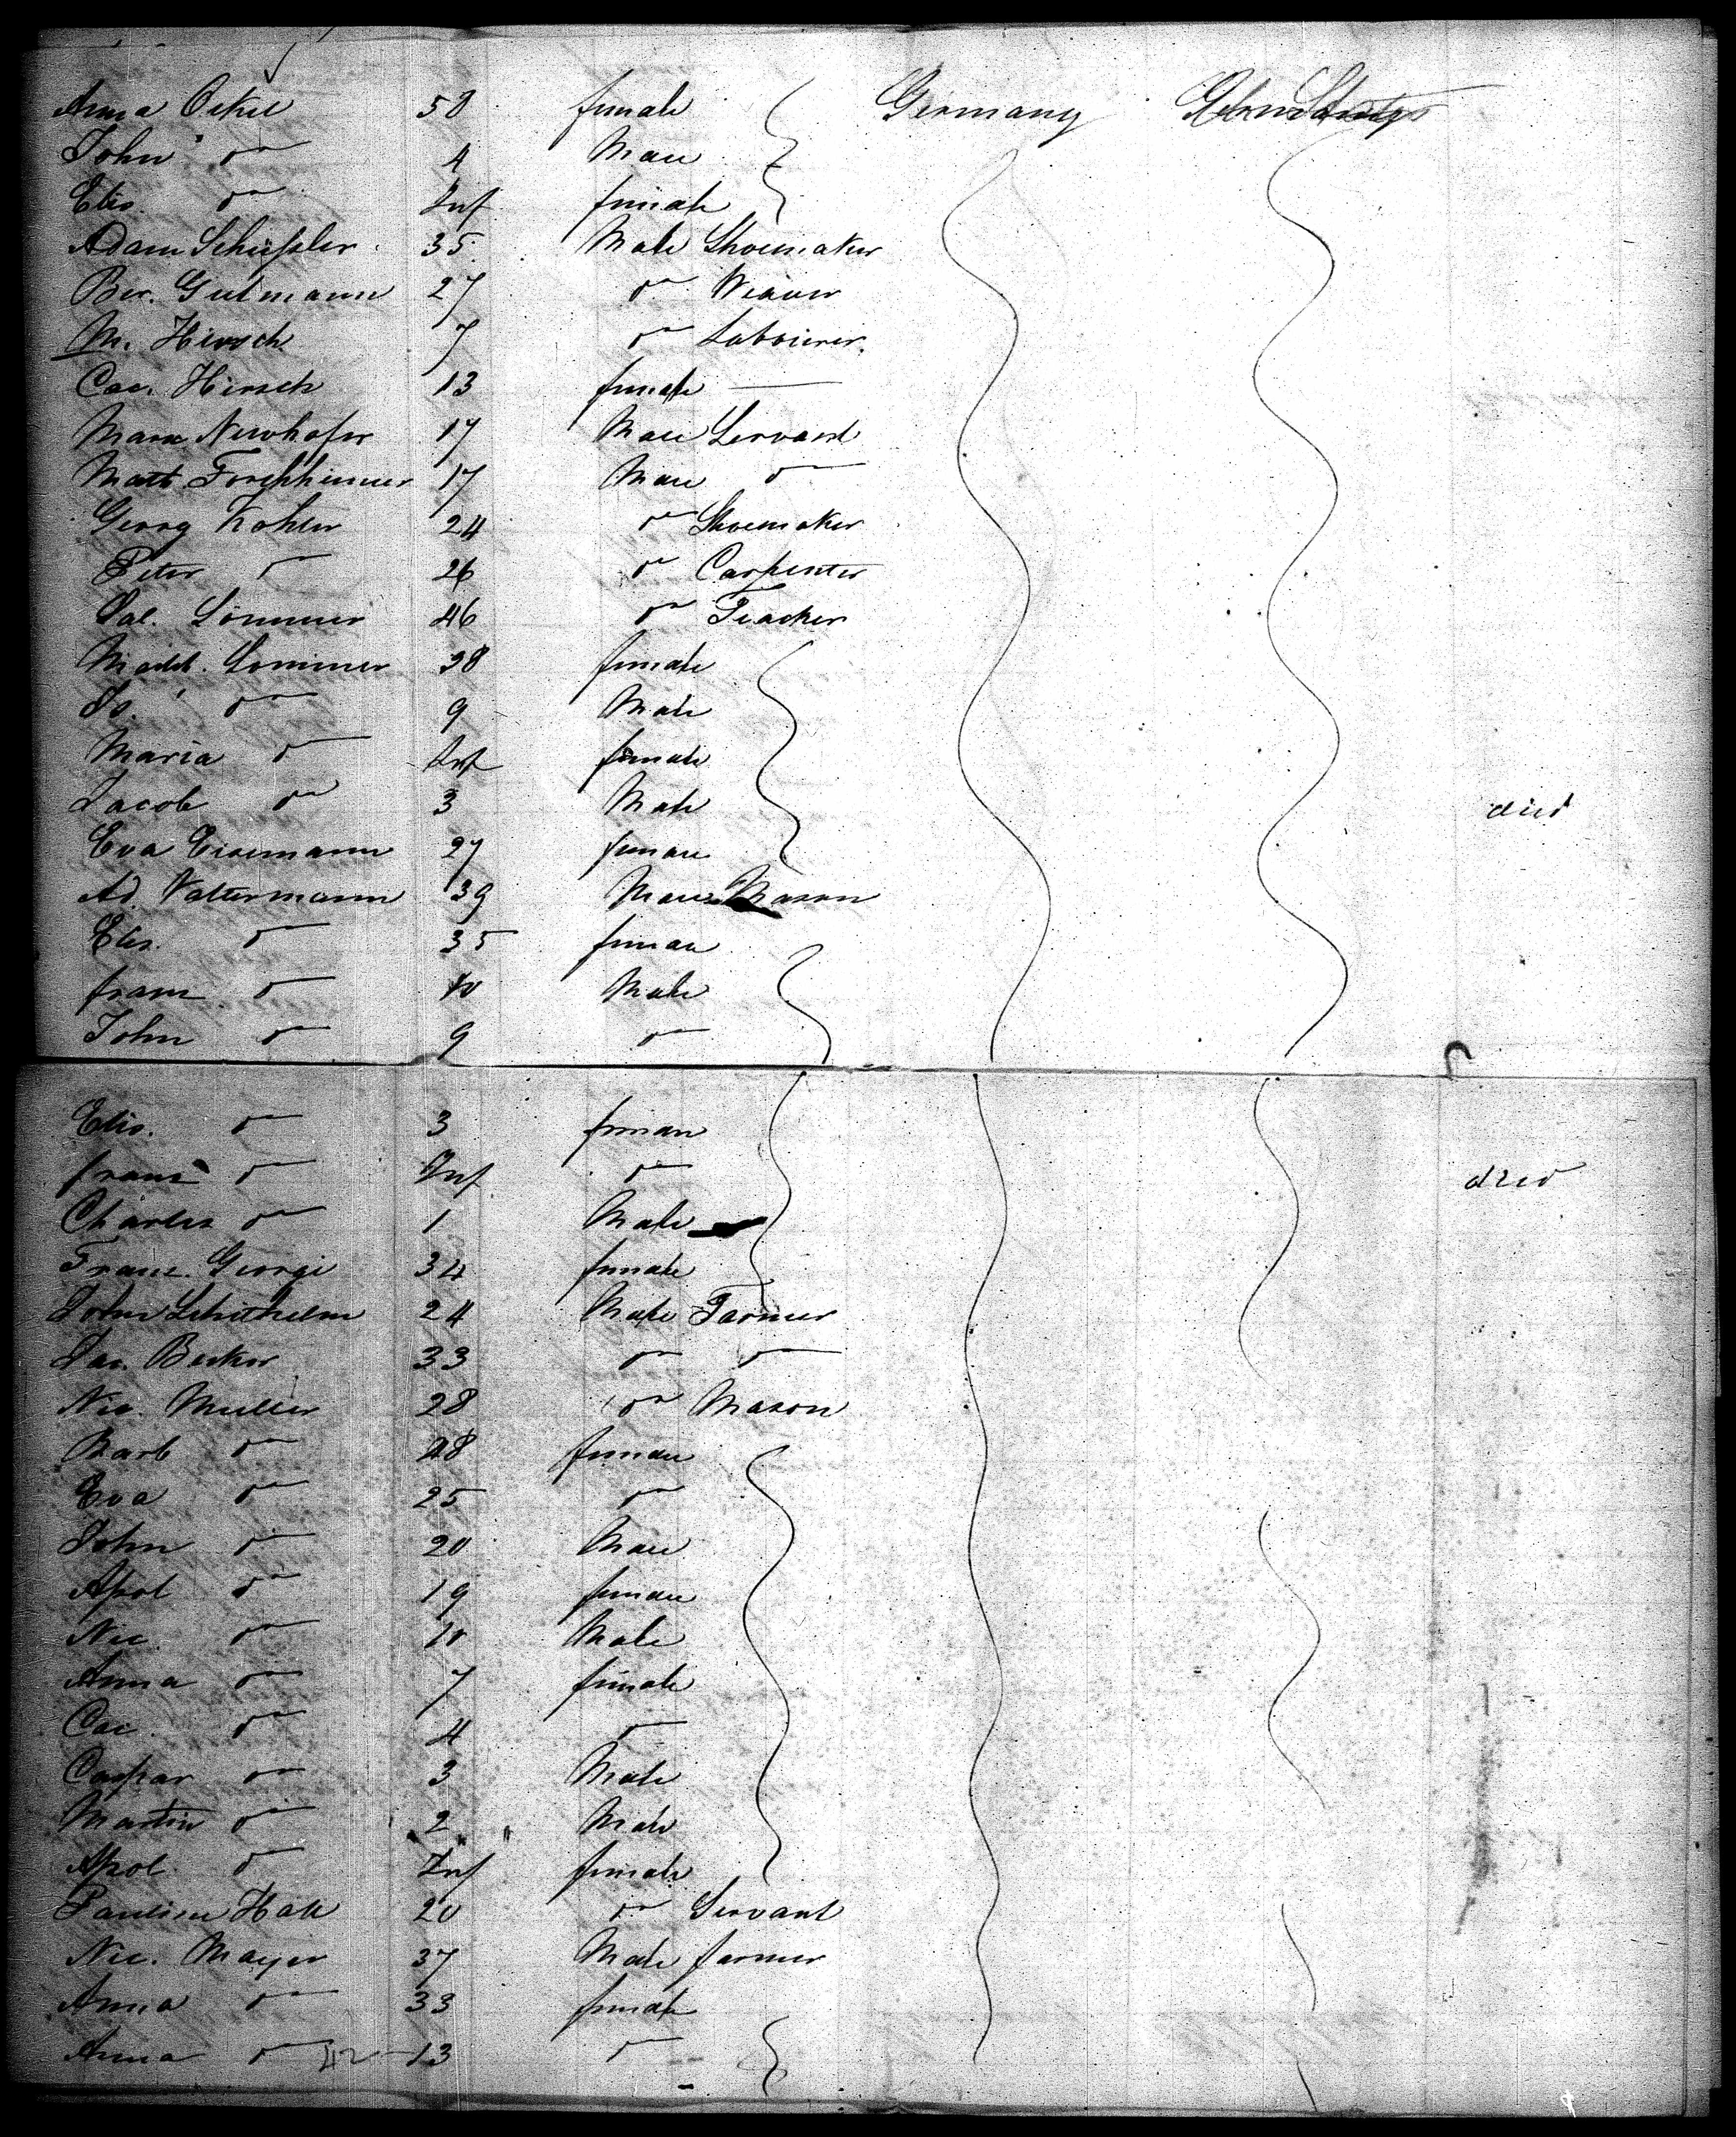 Anna Oekel 58 female Germany
John do 4 Male
Elis. do Inf female
Adam Schüßler 35 Male Shoemaker
Ber. Gutmann 27 do Weaver
M. Hirsch 7 do Labourer
Cac. Hirsch 13 female —
Marx Newhofer 17 Male Servant
Matt Forchheimer 17 Male do
Georg Kohler 24 do Shoemaker
Peter do 26 do Carpenter
Sal. Sommer 46 do Teacher
Madd. Sommer 38 female
Jo. do 9 Male
Maria do Inf female
Jacob do 3 Male died
Eva Eisemann 27 female
Ad. Waltermann 39 Male Mason
Elis. do 35 female
franz do 10 Male
John do 9 do
Elis. do 3 female
franz do Inf do died
Charles do 1 Male
Franz. Georgi 34 female
John 24 Male Farmer
Jac. Becker 33 do do
Nic. Muller 28 do Mason
Barb do 28 female
Eva do 25 do
John do 20 Male
Apol do 19 female
Nic. do 10 Male
Anna do 7 female
Cac. do 4 do
Caspar do 3 Male
Martin do 2 Male
Apol. do Inf female
Pauline Hall 20 do Servant
Nic. Mayer 37 Male farmer
Anna do 33 female
Anna do 42 13 do